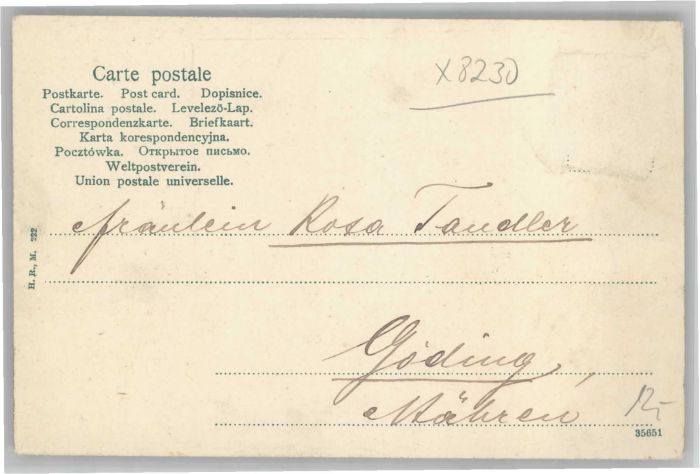 Carte postale
Postkarte. Post card. Dopisnice.
Cartolina postale. Levelező-Lap.
Correspondenzkarte. Briefkaart.
Karta korespondencyjna.
Pocztówka. Открытое письмо.
Weltpostverein.
Union postale universelle.
X8230
Fräulein Rosa Tandler
H. R., M. 222
Göding,
Mähren
12,-
35651